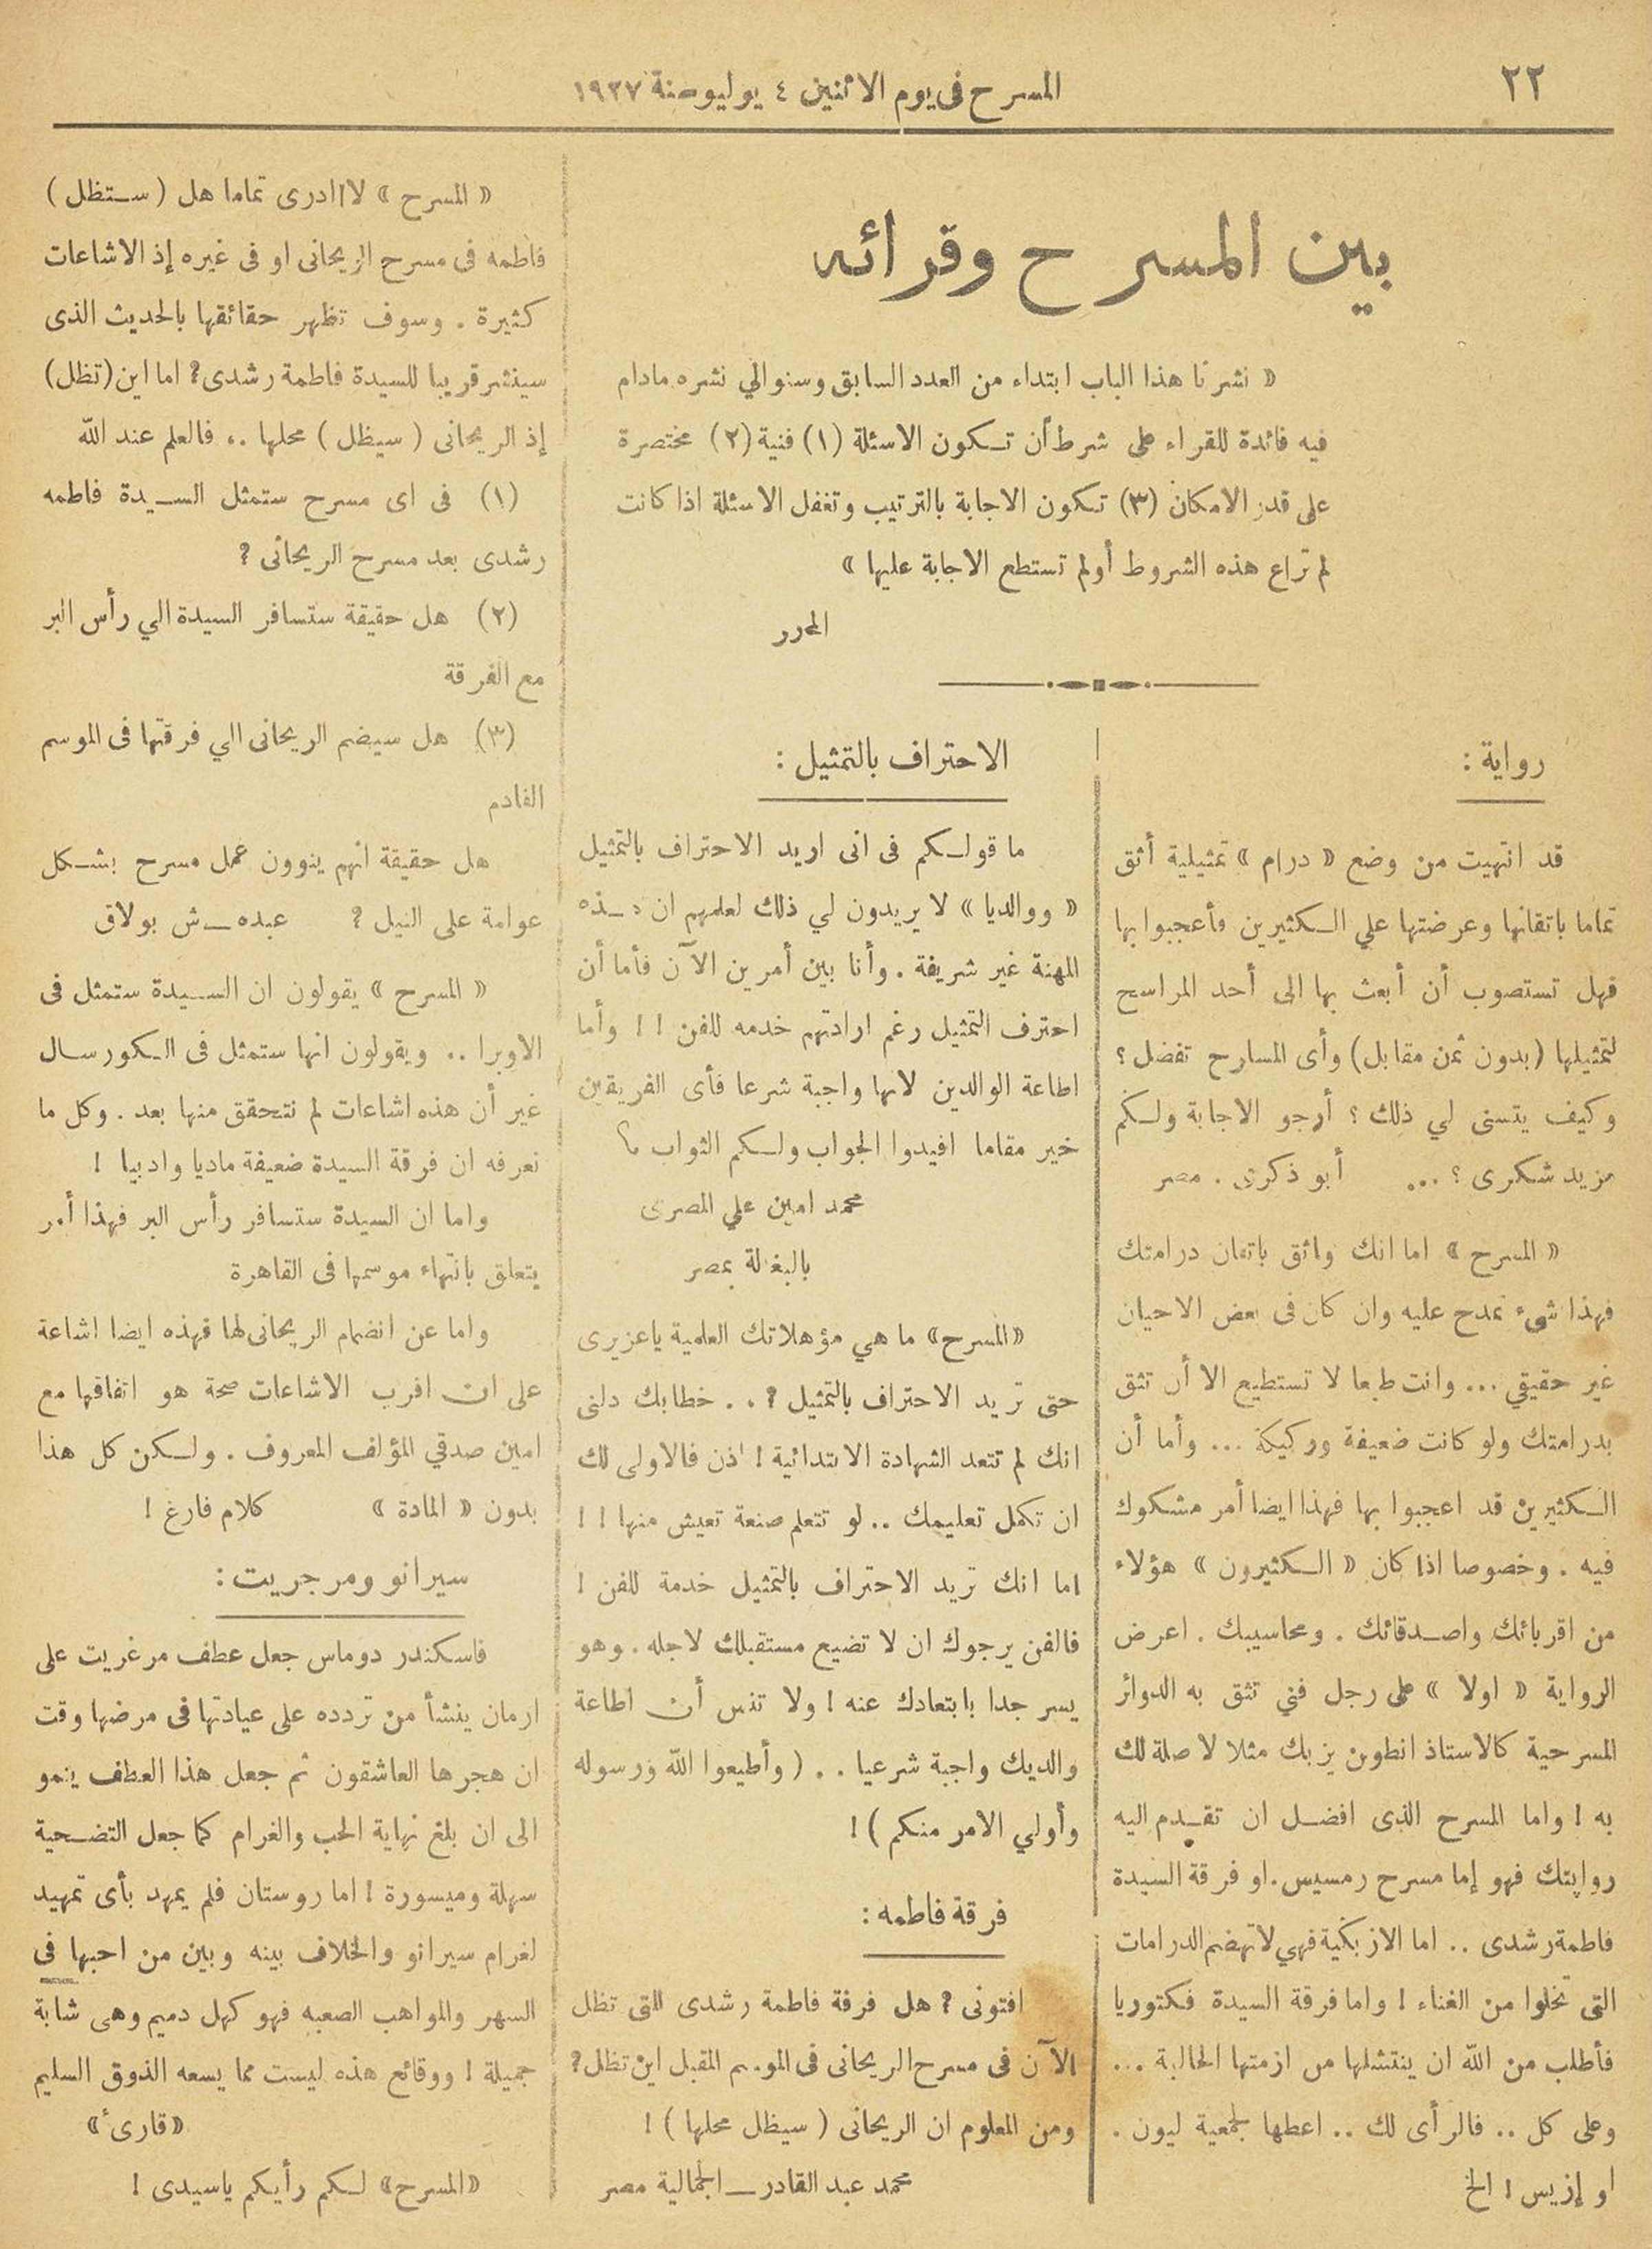 ٢٢
المسرح فى يوم الاثنين ٤ يوليو سنة ١٩٢٧
بين المسرح وقرائه
« نشرنا هذا الباب ابتداء من العدد السابق وسنوالي نشره مادام
فيه فائدة للقراء على شرط أن تكون الاسئلة (١) فنية (٢) مختصرة
على قدر الامكان (٣) تكون الاجابة بالترتيب وتغفل الاسئلة اذا كانت
لم تراع هذه الشروط أولم تستطع الاجابة عليها »
المحرر
رواية :
قد انتهيت من وضع « درام » تمثيلية أثق
تماما باتقانها وعرضتها علي الكثيرين فأعجبوا بها
فهل تستصوب أن أبعث بها الى أحد المراسح
لتمثيلها (بدون ثمن مقابل) وأى المسارح تفضل ؟
وكيف يتسنى لي ذلك ؟ أرجو الاجابة ولكم
مزيد شكرى ؟ ... أبو ذكرى . مصر
« المسرح » اما انك واثق باتقان درامتك
فهذا شىء تمدح عليه وان كان فى بعض الاحيان
غير حقيقي ... وانت طبعا لا تستطيع الا أن تثق
بدرامتك ولو كانت ضعيفة وركيكة ... وأما أن
الكثيرين قد اعجبوا بها فهذا ايضا أمر مشكوك
فيه . وخصوصا اذا كان « الكثيرون » هؤلاء
من اقربائك واصدقائك . ومحاسيبك . اعرض
الرواية « اولا » على رجل فني تثق به الدوائر
المسرحية كالاستاذ انطون يزبك مثلا لا صلة لك
به ! واما المسرح الذى افضل ان تقدم اليه
روايتك فهو إما مسرح رمسيس . او فرقة السيدة
فاطمة رشدى .. اما الازبكية فهي لا تهضم الدرامات
التى تخلوا من الغناء ! واما فرقة السيدة فكتوريا
فأطلب من الله ان ينتشلها من ازمتها الحالية ...
وعلى كل .. فالرأى لك .. اعطها لجمعية ليون .
او إزيس ! الخ
الاحتراف بالتمثيل :
ما قولكم فى انى اريد الاحتراف بالتمثيل
« ووالديا » لا يريدون لي ذلك لعلمهم ان هذه
المهنة غير شريفة . وأنا بين أمرين الآن فأما أن
احترف التمثيل رغم ارادتهم خدمه للفن ! ! وأما
اطاعة الوالدين لانها واجبة شرعا فأى الفريقين
خير مقاما افيدوا الجواب ولكم الثواب ؟
محمد امين علي المصرى
بالبغالة بمصر
«المسرح» ما هي مؤهلاتك العلمية ياعزيزى
حتى تريد الاحتراف بالتمثيل ? . . خطابك دلنى
انك لم تتعد الشهادة الابتدائية ! اذن فالاولى لك
ان تكمل تعليمك .. لو تتعلم صنعة تعيش منها ! !
اما انك تريد الاحتراف بالتمثيل خدمة للفن !
فالفن يرجوك ان لا تضيع مستقبلك لاجله . وهو
يسر جدا بابتعادك عنه ! ولا تنس أن اطاعة
والديك واجبة شرعيا . . ( وأطيعوا الله ورسوله
وأولي الامر منكم ) !
فرقة فاطمه :
افتونى ? هل فرقة فاطمة رشدى للتى تظل
الآن فى مسرح الريحانى فى الموسم المقبل اين تظل ?
ومن المعلوم ان الريحانى ( سيظل محلها ) !
محمد عبد القادر ـ الجمالية مصر
« المسرح » لا ادرى تماما هل ( ستظل )
فاطمه فى مسرح الريحانى او فى غيره إذ الاشاعات
كثيرة . وسوف تظهر حقائقها بالحديث الذى
سينشر قريبا للسيدة فاطمة رشدى ? اما اين (تظل)
إذ الريحانى ( سيظل ) محلها .، فالعلم عند الله
(١) فى اى مسرح ستمثل السيدة فاطمه
رشدى بعد مسرح الريحانى ?
(٢) هل حقيقة ستسافر السيدة الي رأس البر
مع الفرقة
(٣) هل سيضم الريحانى الي فرقتها فى الموسم
القادم
هل حقيقة انهم ينوون عمل مسرح بشكل
عوامة على النيل ? عبده ـ ش بولاق
« المسرح » يقولون ان السيدة ستمثل فى
الاوبرا .. ويقولون انها ستمثل فى الكورسال
غير أن هذه اشاعات لم نتحقق منها بعد . وكل ما
نعرفه ان فرقة السيدة ضعيفة ماديا وادبيا !
واما ان السيدة ستسافر رأس البر فهذا أمر
يتعلق بانتهاء موسمها فى القاهرة
واما عن انضمام الريحانى لها فهذه ايضا اشاعة
على ان اقرب الاشاعات صحة هو اتفاقها مع
امين صدقي المؤلف المعروف . ولكن كل هذا
بدون « المادة » كلام فارغ !
سيرانو ومرجريت :
فاسكندر دوماس جعل عطف مرغريت على
ارمان ينشأ من تردده على عيادتها فى مرضها وقت
ان هجرها العاشقون ثم جعل هذا العطف ينمو
الى ان بلغ نهاية الحب والغرام كما جعل التضحية
سهلة وميسورة ! اما روستان فلم يمهد بأى تمهيد
لغرام سيرانو والخلاف بينه وبين من احبها فى
السهر والمواهب الصعبه فهو كهل دميم وهى شابة
جميلة ! ووقائع هذه ليست مما يسعه الذوق السليم
«قارىء»
«المسرح» لكم رأيكم ياسيدى !